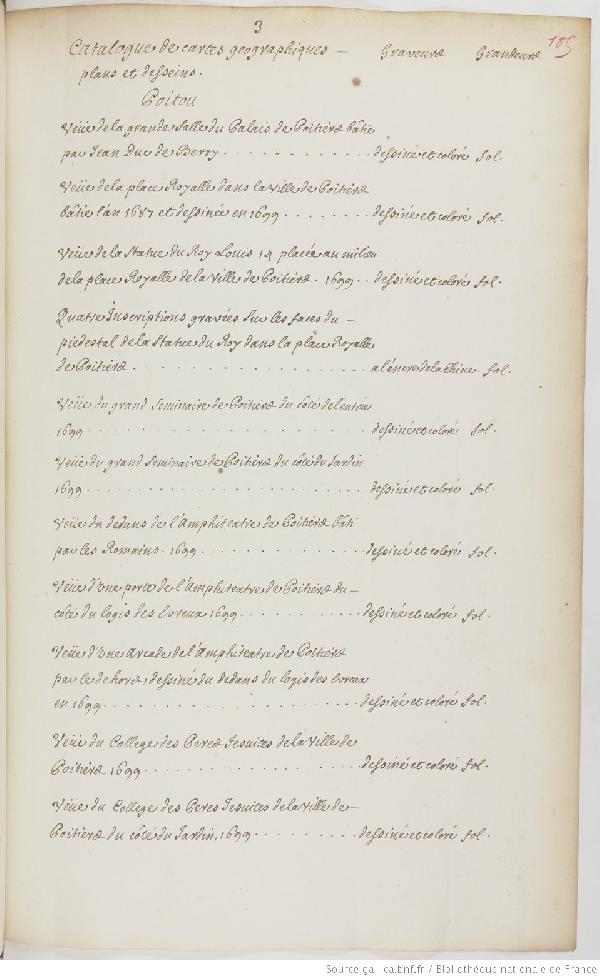 3
185
Catalogue de cartes geographiques — Graveurs Grandeurs
plans et desseins.
Poitou
Veüe de la grande Salle du Palais de Poitiers bâtie
par Jean Duc de Berry . . . . . . . . . . dessiné et coloré fol.
Veüe de la place Royalle dans la Ville de Poitiers
bâtie l'an 1687 et dessinée en 1699 . . . . . . . dessiné et coloré fol.
Veüe de la Statue du Roy Louis 14 placée au milieu
de la place Royalle de la Ville de Poitiers . 1699 . . dessiné et coloré fol.
Quatre Inscriptions gravées sur les faces du —
piedestal de la Statue du Roy dans la place Royalle
de Poitiers . . . . . . . . . . . . . . . . . a l'encre de la Chine fol.
Veüe du grand Seminaire de Poitiers du côté de l'entrée
1699 . . . . . . . . . . . . . . . . . . . . dessiné et coloré fol.
Veüe du grand Seminaire de Poitiers du côté du Jardin
1699 . . . . . . . . . . . . . . . . . . . . dessiné et coloré fol.
Veüe du dedans de l'Amphiteatre de Poitiers bâti
par les Romains. 1699 . . . . . . . . . . . . dessiné et coloré fol.
Veüe d'une porte de l'Amphiteatre de Poitiers du —
côté du logis des 1699 . . . . . . . . . dessiné et coloré fol.
Veüe d'une Arcade de l'Amphiteatre de Poitiers
par le dehors, dessiné du dedans du logis des
en 1699 . . . . . . . . . . . . . . . . . . dessiné et coloré fol.
Veüe du College des Peres Jesuites de la Ville de
Poitiers 1699 . . . . . . . . . . . . . . . dessiné et coloré fol.
Veüe du College des Peres Jesuites de la Ville de —
Poitiers du côté du Jardin, 1699 . . . . . . . . dessiné et coloré fol.
Source gallica.bnf.fr / Bibliothèque nationale de France